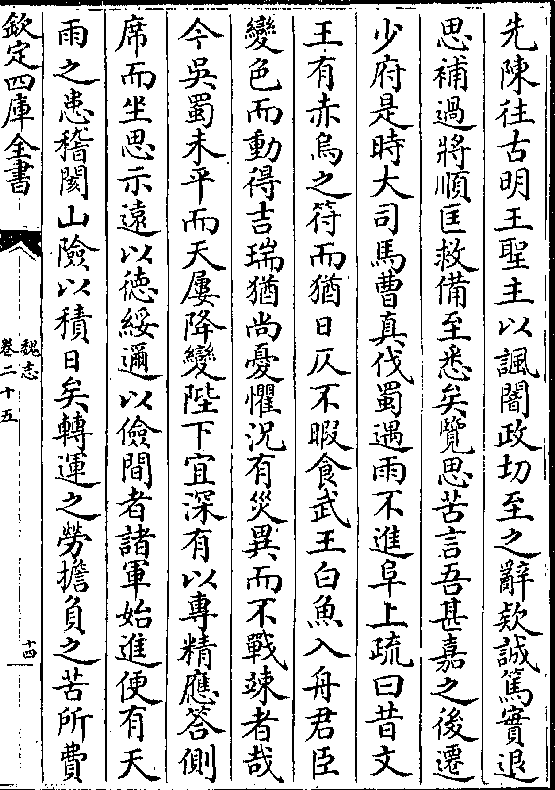 先陳往古明王聖主以諷闇政切至之辭欵誠篤實退
思補過將順匡救備至悉矣覽思苦言吾甚嘉之後遷
少府是時大司馬曹真伐蜀遇雨不進阜上疏曰昔文
王有赤烏之符而猶日仄不暇食武王白魚入舟君臣
變色而動得吉瑞猶尚憂懼況有災異而不戰竦者哉
今吳蜀未平而天屢降變陛下宜深有以專精應答側
席而坐思示遠以德綏邇以儉間者諸軍始進便有天
雨之患稽閡山險以積日矣轉運之勞擔負之苦所費
欽定四庫全書
魏志
卷二十五
十四